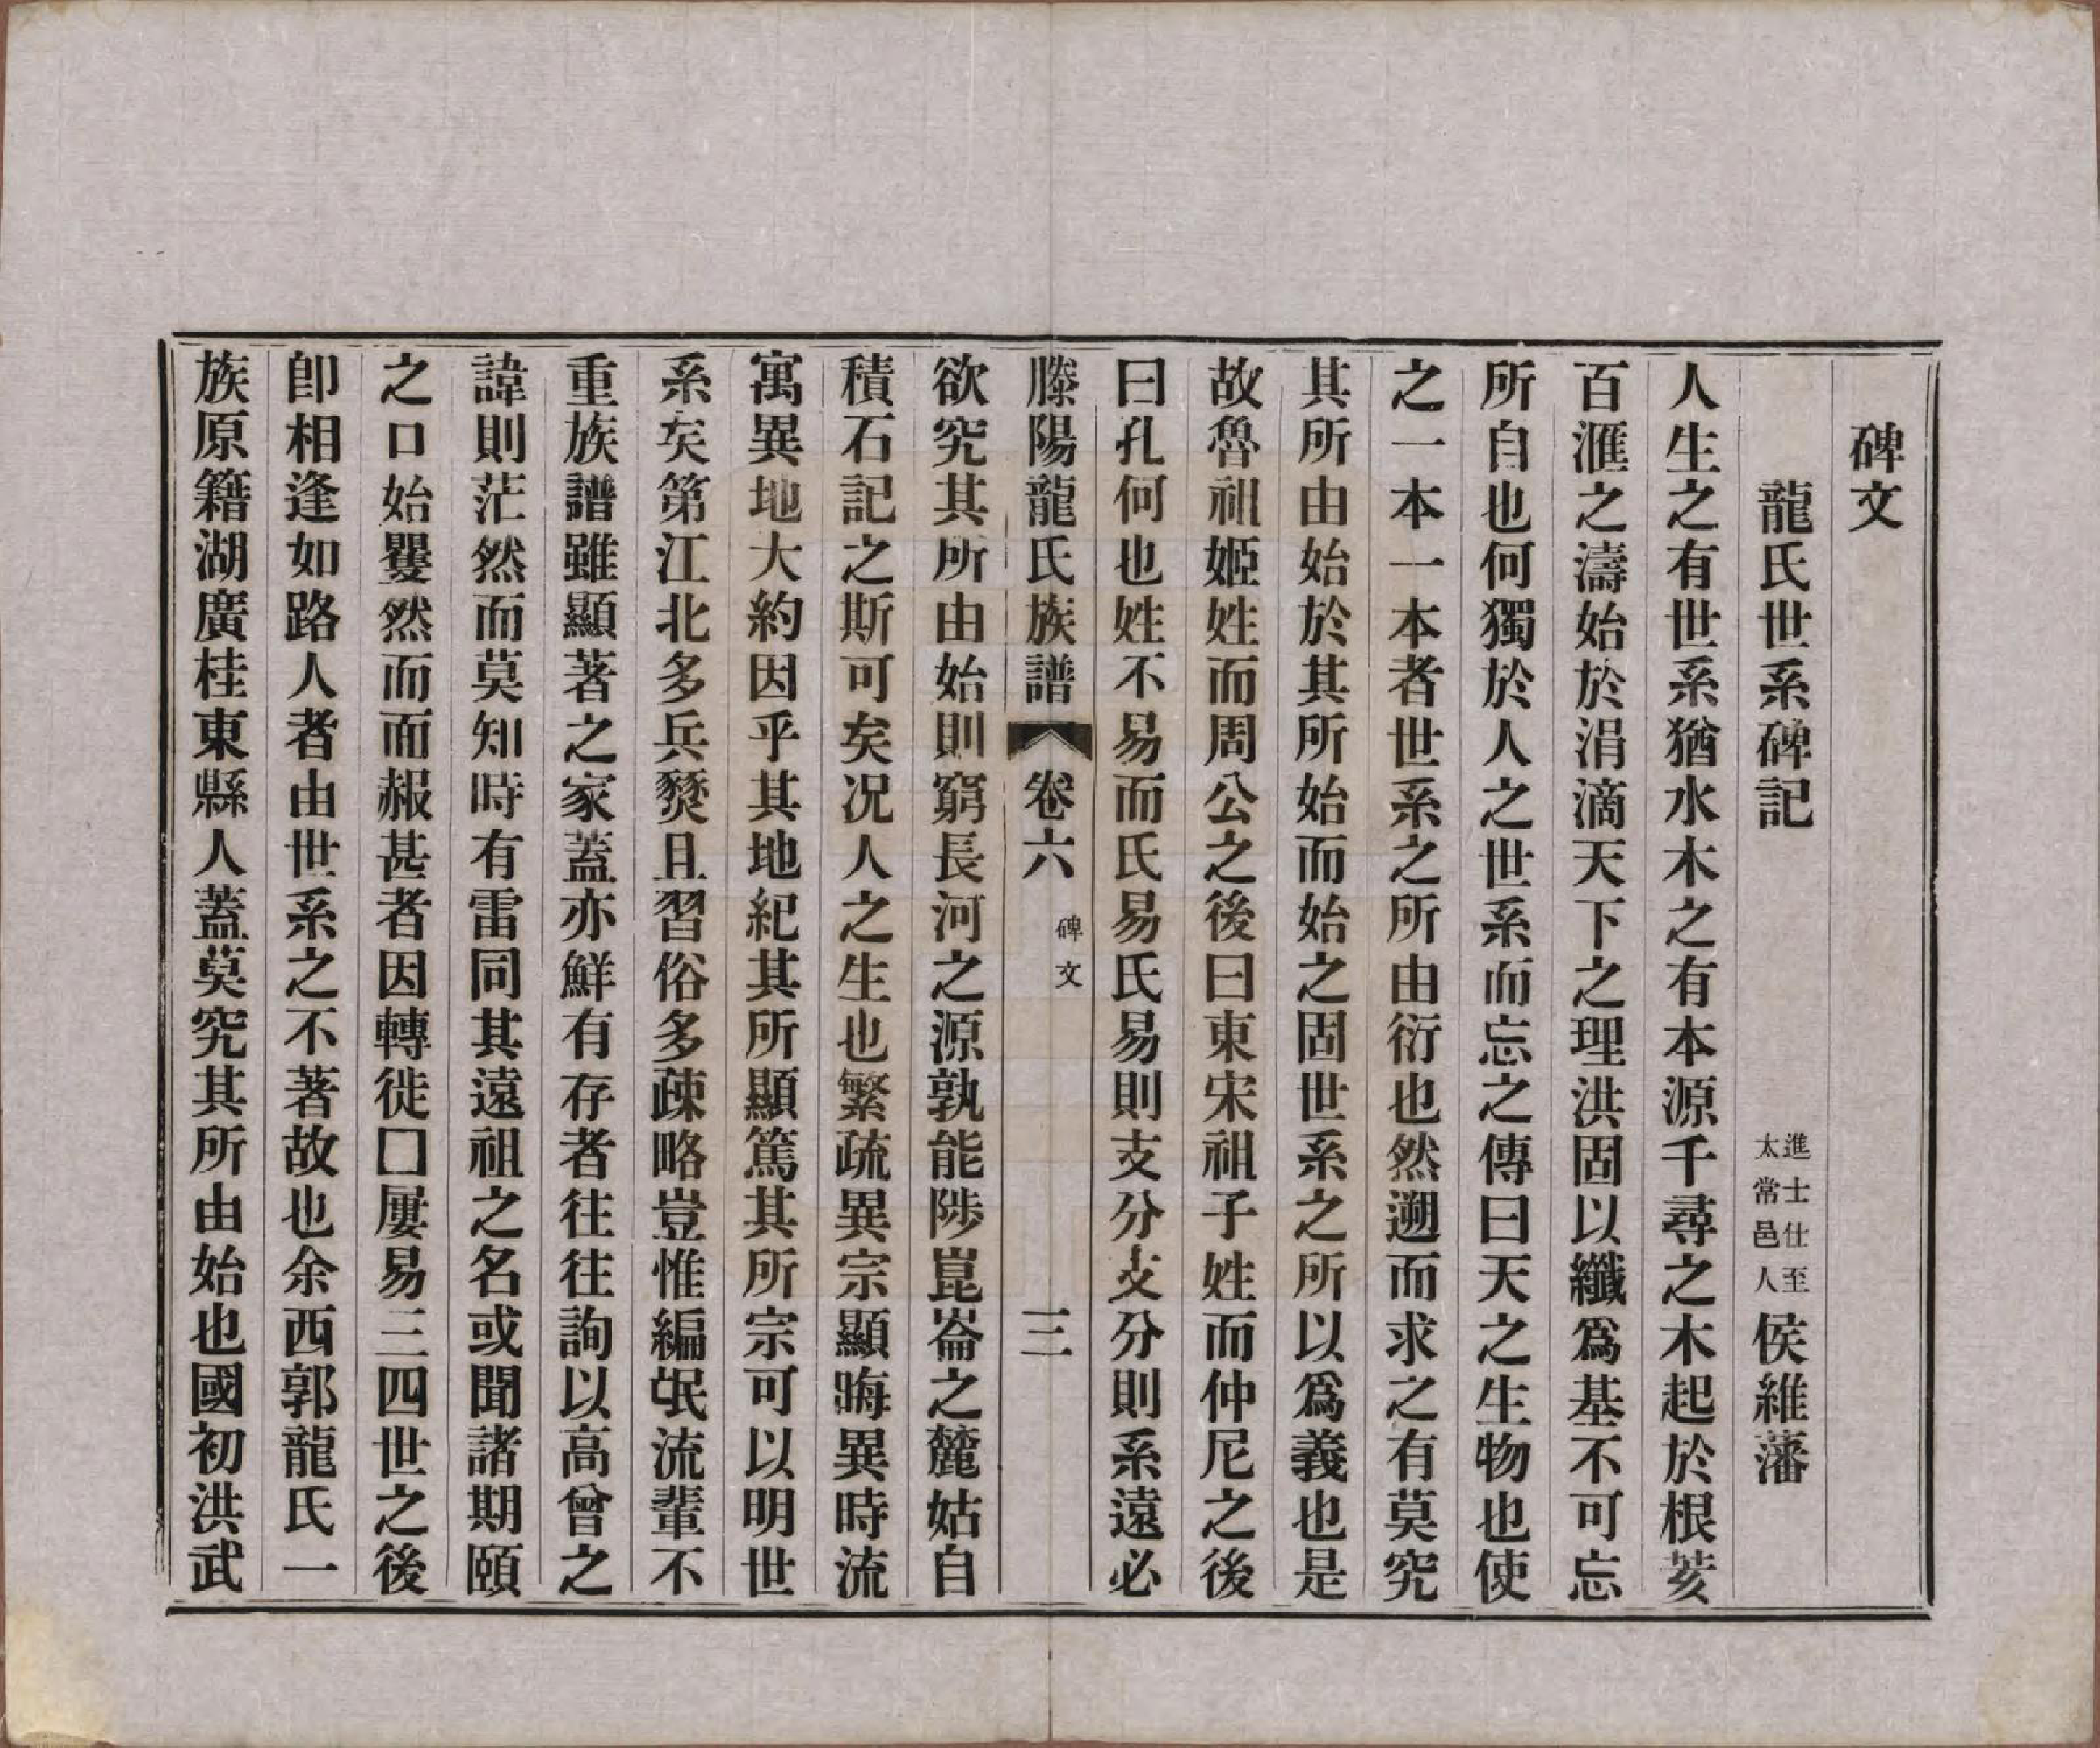 碑文
龍氏世系碑記 進士仕至太常邑人侯維藩
人生之有世系猶水木之有本源千尋之木起於根荄
百滙之濤始於涓滴天下之理洪固以纖爲基不可忘
所自也何獨於人之世系而忘之傳曰天之生物也使
之一本一本者世系之所由衍也然遡而求之有莫究
其所由始於其所始而始之固世系之所以爲義也是
故魯祖姬姓而周公之後曰東宋祖子姓而仲尼之後
曰孔何也姓不易而氏易氏易則支分支分則系遠必
滕陽龍氏族譜 卷六 碑文 三
欲究其所由始則窮長河之源孰能陟崑崙之麓姑自
積石記之斯可矣况人之生也繁疏異宗顯晦異時流
寓異地大約因乎其地紀其所顯篤其所宗可以明世
系矣第江北多兵燹且習俗多疎略豈惟編氓流輩不
重族譜雖顯著之家蓋亦鮮有存者往往詢以高曾之
諱則茫然而莫知時有雷同其遠祖之名或聞諸期頤
之口始矍然而面赧甚者因轉徙囗屢易三四世之後
卽相逢如路人者由世系之不著故也余西郭龍氏一
族原籍湖廣桂東縣人蓋莫究其所由始也國初洪武